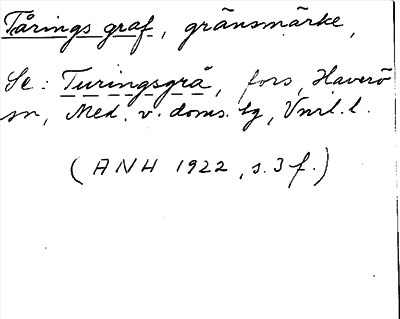 Tårings graf, gränsmärke,
Se: Turingsgrå, fors, Haverö
sn, Med. v. doms. lg, Vnrl. l.
(ANH 1922, s. 3 f.)